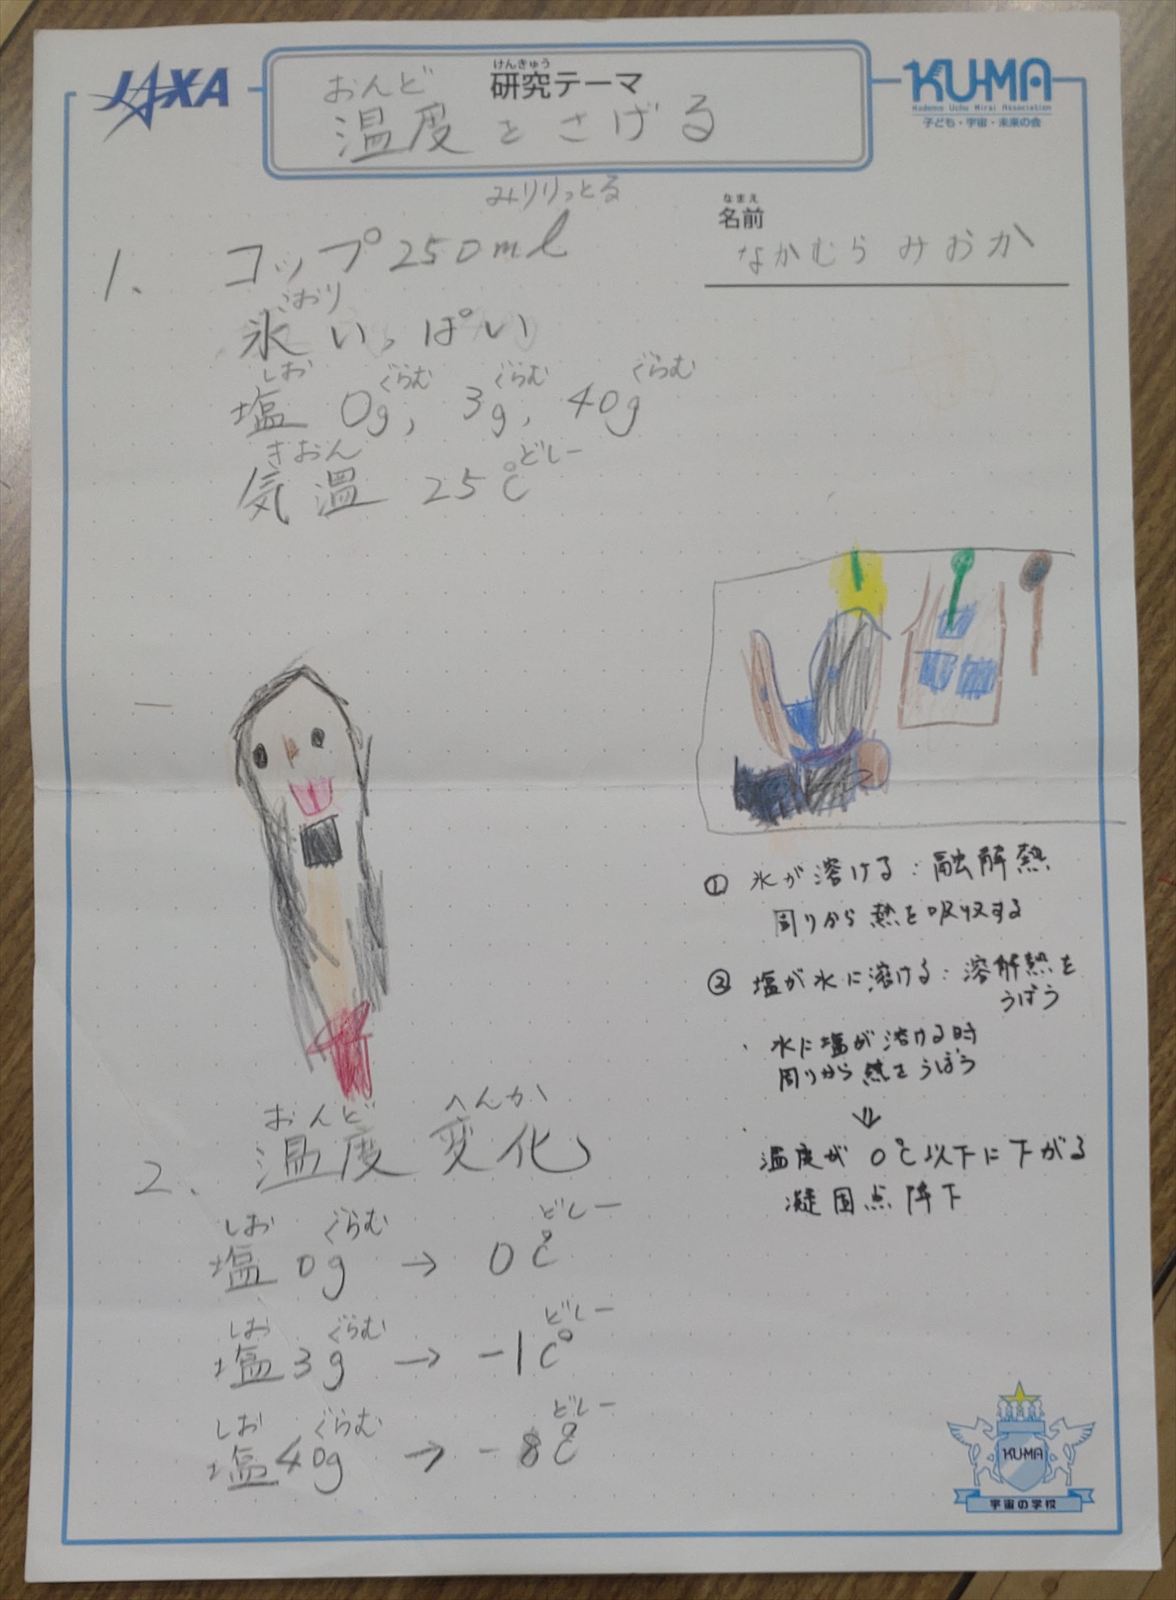 JAXA
けんきゅう
研究テーマ
おんど
温度をさげる
KU-MA
Kodomo Uchu Mirai Association
子ども・宇宙・未来の会
なまえ
名前
なかむら みおか
みりりっとる
1. コップ 250ml
こおり
氷 いっぱい
しお ぐらむ ぐらむ ぐらむ
塩 0g, 3g, 40g
きおん どしー
気温 25℃
① 氷が溶ける:融解熱
周りから熱を吸収する
② 塩が水に溶ける:溶解熱を
うばう
・水に塩が溶ける時
周りから熱をうばう
⇓
温度が 0℃以下に下がる
凝固点降下
おんど へんか
2. 温度 変化
しお ぐらむ どしー
塩 0g → 0℃
しお ぐらむ どしー
塩 3g → -1℃
しお ぐらむ どしー
塩 40g → -8℃
KU-MA
宇宙の学校